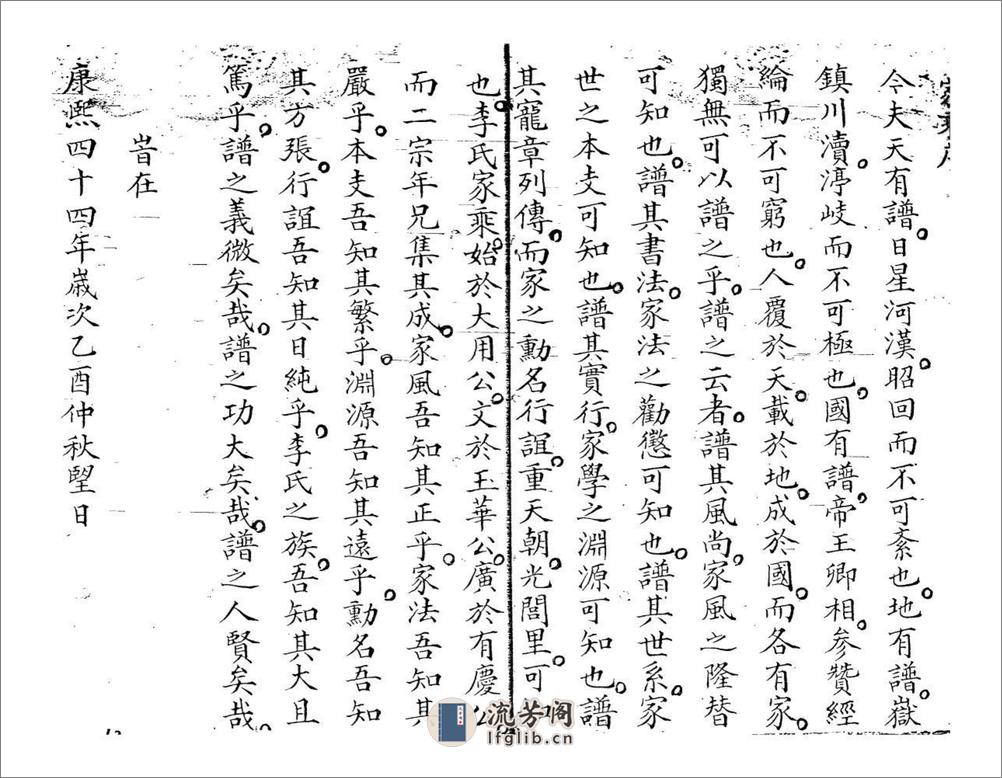 今夫天有譜。日星河漢。昭回而不可紊也。地有譜。嶽
鎮川瀆。渟岐而不可極也。國有譜。帝王卿相。參贊經
綸而不可窮也。人覆於天。載於地。成於國。而各有家。
獨無可以譜之乎。譜之云者。譜其風尚。家風之隆替
可知也。譜其書法。家法之勸懲可知也。譜其世系。家
世之本支可知也。譜其實行。家學之淵源可知也。譜
其寵章列傳。而家之勳名行誼。重天朝。光閭里。可知
也。李氏家乘。始於大用公。文於玉華公。廣於有慶公
而二宗年兄集其成。家風吾知其正乎。家法吾知其
嚴乎。本支吾知其繁乎。淵源吾知其遠乎。勳名吾知
其方張。行誼吾知其日純乎。李氏之族。吾知其大且
篤乎。譜之義微矣哉。譜之功大矣哉。譜之人賢矣哉。
旹在
康熙四十四年歲次乙酉仲秋望日
流芳阁
lfglib.cn